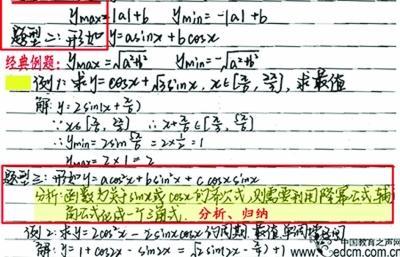 ymax=|a|+b ymin=-|a|+b
题型二:形如 y=asinx+bcosx
经典例题: ymax=√a²+b² ymin=-√a²+b²
例1:求y=cosx+√3sinx, x∈[π/6, 2π/3], 求最值
解:y=2sin(x+π/6)
∵x∈[π/6, 2π/3] ∴x+π/6∈[π/3, 5π/6]
∴ymin=2sin5π/6=2×1/2=1
ymax=2×1=2
题型三:形如y=acos²x+bsin²x+ccosxsinx
分析:函数为关于sinx或cosx的齐次式,则需要利用降幂公式,辅
角公式化成一个三角式. 分析、归纳
例2:求y=2cos²x-2sinxcosx的周期.最值.单调增区间
解:y=1+cos2x-sin2x=√2sin(2x-)+1
中国教育之声网